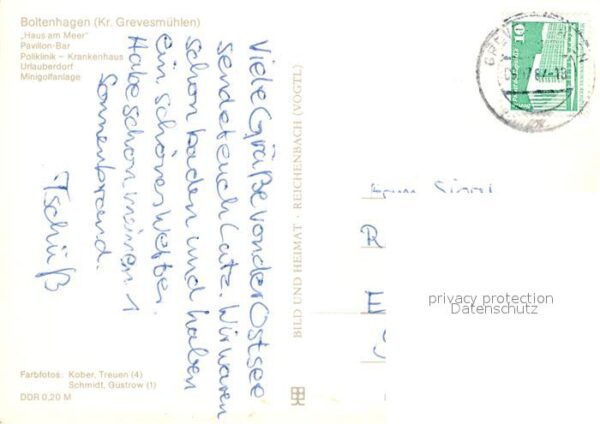 Boltenhagen (Kr. Grevesmühlen)
„Haus am Meer"
Pavillon-Bar
Poliklinik – Krankenhaus
Urlauberdorf
Minigolfanlage
Viele Grüße von der Ostsee
sendet euch Lutz. Wir waren
schon baden und haben
ein schönes Wetter.
Habe schon meinen 1
Sonnenbrand.
Tschüß
BILD UND HEIMAT · REICHENBACH (VOGTL)
10
R
E
privacy protection
Datenschutz
Farbfotos: Kober, Treuen (4)
Schmidt, Güstrow (1)
DDR 0,20 M